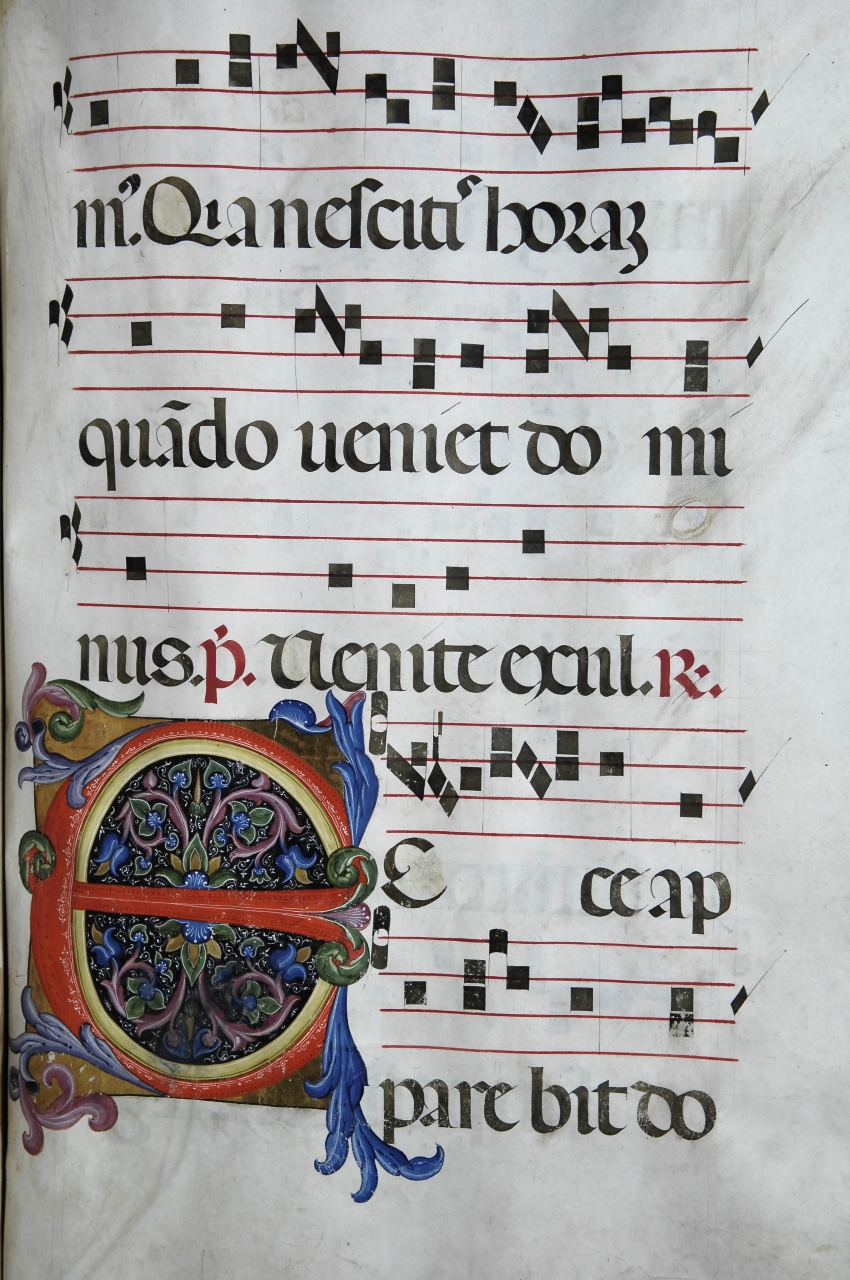 m᷒. Quia nescitis horaꝝ
quãdo ueniet do mi
nus. p̃. Uenite exul. R̃.
E cce ap
pare bit do